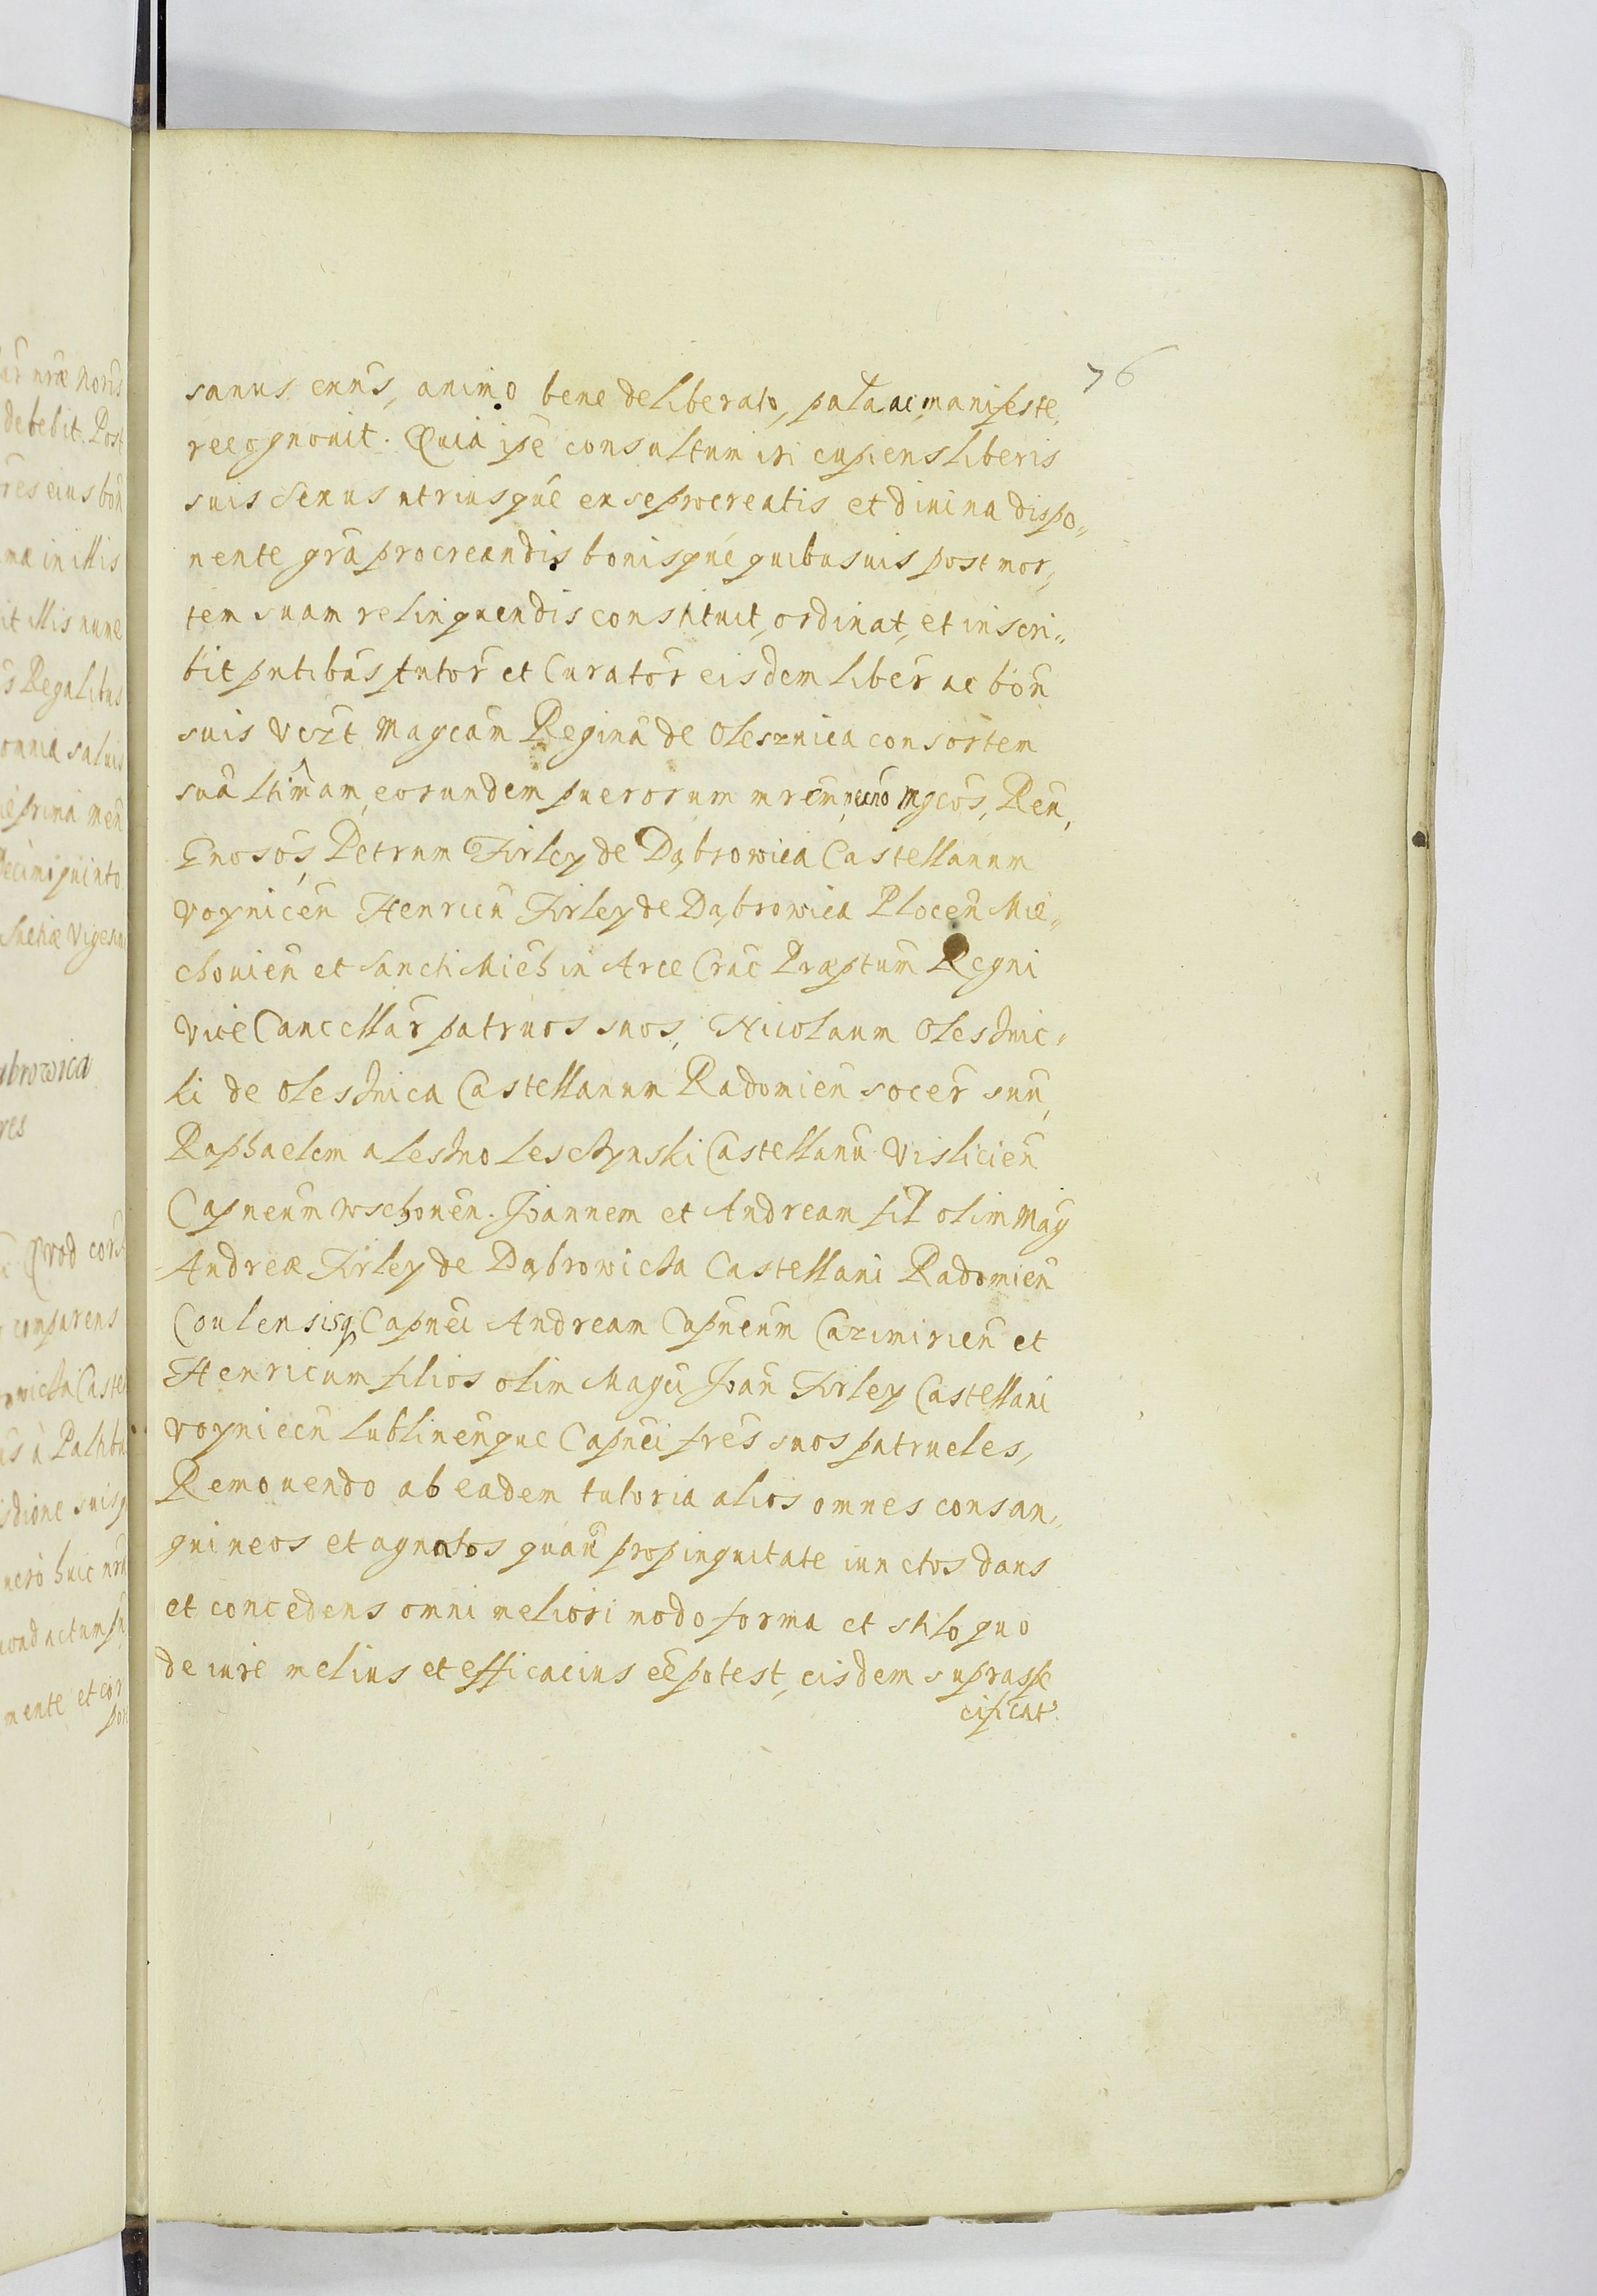 76
sanus enñs, animo bene deliberato, palã ac manifeste,
recognouit. Quia ipe consultum iri cupiens liberis
suis sexus utriusque ex se procreatis et diuina dispo„
nente gra procreandis bonisque quibusuis post mor„
tem suam relinquendis constituit, ordinat, et inscri„
bit pntibus tutor et Curator eisdem liber ac bon
suis vczt Magcam Reginã de Olesznica consortem
suã lttimam, eorundem puerorum mrem, necno Mgcos, Reũ,
Gnosos, Petrum Firley de Dąbrowica Castellanum
voynicen Henricũ Firley de Dąbrowica Plocen Mie„
chouien et Sancti Mich in Arce Crac Præptum Regni
vice Cancellar patruos suos, Nicolaum Olesnic„
ki de Olesnica Castellanum Radomien socer suũ,
Raphaelem a Lesno Lesczynski Castellanũ Vislicien
Capneum wschouen. Joannem et Andream fil olim Mag
Andreæ Firley de Dąbrowicka Castellani Radomien
Coulensisq Capnei Andream Capneum Cazimirien et
Henricum filios olim Magci Joan Firley Castellani
voyniecn Lublinenque Capnei fres suos patrueles,
Remouendo ab eadem tutoria alios omnes consan„
guineos et agnatos quauis propinquitate iunctos dans
et concedens omni meliori modo forma et stilo quo
de iure melius et efficacius eẽ potest, eisdem supraspe
cificat.